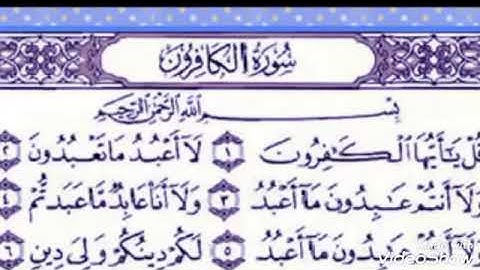 سُورَةُ الكَافِرُونَ
بِسْمِ اللَّهِ الرَّحْمَٰنِ الرَّحِيمِ
قُلْ يَٰٓأَيُّهَا ٱلْكَٰفِرُونَ ١ لَآ أَعْبُدُ مَا تَعْبُدُونَ ٢
وَلَآ أَنتُمْ عَٰبِدُونَ مَآ أَعْبُدُ ٣ وَلَآ أَنَا۠ عَابِدٌ مَّا عَبَدتُّمْ ٤
وَلَآ أَنتُمْ عَٰبِدُونَ مَآ أَعْبُدُ ٥ لَكُمْ دِينُكُمْ وَلِىَ دِينِ ٦
VideoShow